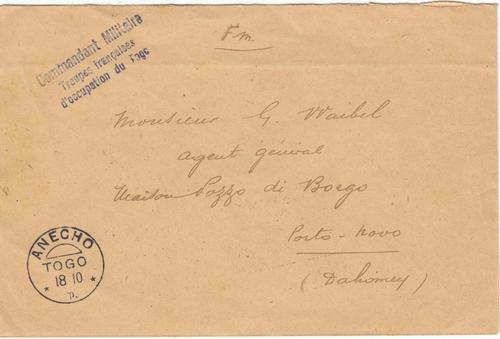 Fm
Commandant Militaire
Troupes françaises
d'occupation du Togo
Monsieur G. Waibel
agent général
Maison Pozzo di Borgo
Porto-Novo
(Dahomey)
ANECHO
TOGO
* 18 10 *